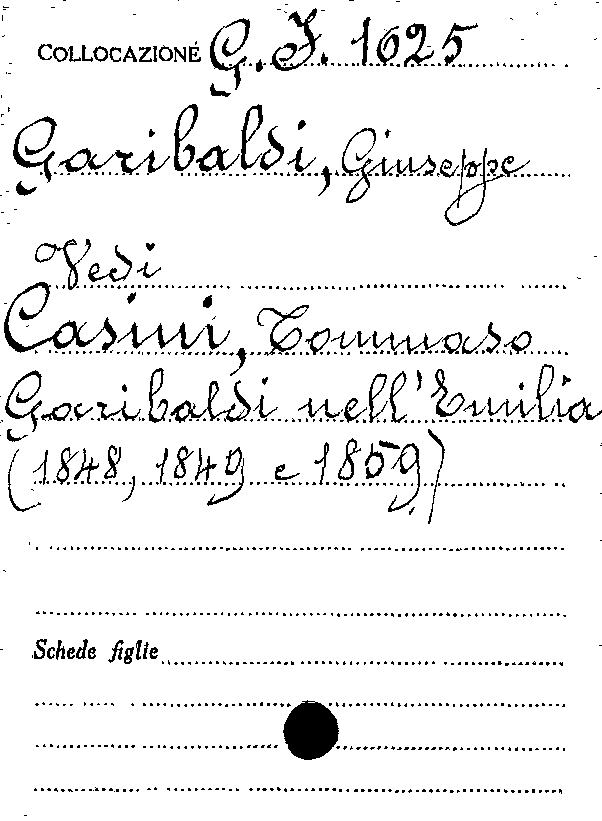 COLLOCAZIONE G. J. 1625
Garibaldi, Giuseppe
Vedi
Casini, Tommaso
Garibaldi nell'Emilia
(1848, 1849 e 1859)
Schede figlie